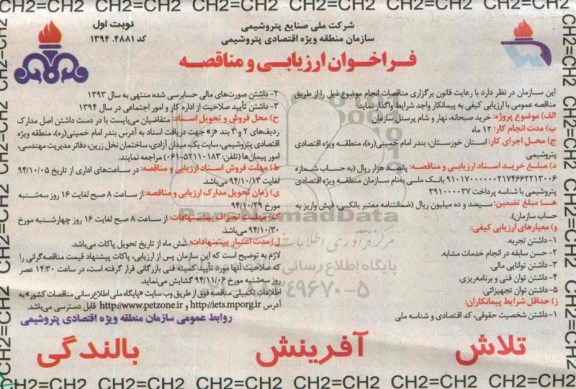 CH2=CH2=CH2=CH2=CH2=CH2=CH2=CH2=CH2=CH2
شرکت ملی صنایع پتروشیمی
سازمان منطقه ویژه اقتصادی پتروشیمی
نوبت اول
کد ۱۳۹۴.۴۸۸۱
فراخوان ارزیابی و مناقصه
این سازمان در نظر دارد با رعایت قانون برگزاری مناقصات انجام موضوع ذیل را از طریق
مناقصه عمومی با ارزیابی کیفی به پیمانکار واجد شرایط واگذار نماید
الف) موضوع پروژه: خرید صبحانه، نهار و شام پرسنل سازمان
ب) مدت انجام کار: ۱۲ ماه
ج) محل اجرای کار: استان خوزستان، بندر امام خمینی(ره)، منطقه ویژه اقتصادی
پتروشیمی
د) مبلغ خرید اسناد ارزیابی و مناقصه: پانصد هزار ریال (به حساب شماره
بانک ملی بنام سازمان منطقه ویژه اقتصادی
پتروشیمی با شناسه پرداخت ۳۹۱۰۰۰۰۳۷
هـ) مبلغ تضمین: سیصد و ده میلیون ریال (ضمانتنامه معتبر بانکی، فیش واریز به
حساب سازمان).
و) معیارهای ارزیابی کیفی:
۱- داشتن تجربه.
۲- حسن سابقه در انجام خدمات مشابه.
۳- داشتن توانایی مالی.
۴- داشتن توان فنی و برنامه‌ریزی.
۵- داشتن توان تجهیزاتی
ز) حداقل شرایط پیمانکاران:
۱- داشتن شخصیت حقوقی، کد اقتصادی و شناسه ملی
۲- داشتن صورت‌های مالی حسابرسی شده منتهی به سال ۱۳۹۳
۳- داشتن تأیید صلاحیت از اداره کار و امور اجتماعی در سال ۱۳۹۴
ح) محل فروش و تحویل اسناد: متقاضیان می‌بایست با در دست داشتن اصل مدارک
ردیف‌های ۲ و ۳ بند «ز» جهت دریافت اسناد به آدرس بندر امام خمینی(ره)، منطقه ویژه
اقتصادی پتروشیمی، سایت یک، میدان آزادی، ساختمان نخل زرین، دفاتر مدیریت مهندسی،
امور پیمان‌ها (تلفن: ۵۲۱۱۰۱۸۳-۰۶۱) مراجعه نمایند.
ط) مهلت فروش اسناد ارزیابی و مناقصه: در ساعت‌های اداری از تاریخ ۹۴/۱۰/۰۵
لغایت ۹۴/۱۰/۱۳ می‌باشد
ی) زمان تحویل مدارک ارزیابی و مناقصه: از ساعت ۸ صبح لغایت ۱۶ روز سه‌شنبه
مورخ ۹۴/۱۰/۲۹
از ساعت ۸ صبح لغایت ۱۶ روز چهارشنبه مورخ
۹۴/۱۰/۳۰ می‌باشد.
ل) مدت اعتبار پیشنهادات: شش ماه از تاریخ تحویل پاکات می‌باشد.
لازم به توضیح است که این سازمان پس از ارزیابی، پاکات پیشنهاد قیمت مناقصه‌گرانی را
که صلاحیت آنها مورد تأیید کمیته فنی بازرگانی قرار گرفته است، در ساعت ۱۴:۳۰ عصر
روز سه‌شنبه مورخ ۹۴/۱۱/۰۶ گشایش می‌نماید.
اطلاعات تکمیلی مناقصه فوق از طریق وب سایت «پایگاه ملی اطلاع‌رسانی مناقصات کشور» به
آدرس http://iets.mporg.ir و http://www.petzone.ir قابل دسترسی می‌باشد.
روابط عمومی سازمان منطقه ویژه اقتصادی پتروشیمی
تلاش آفرینش بالندگی
CH2=CH2=CH2=CH2=CH2=CH2=CH2=CH2=CH2=CH2